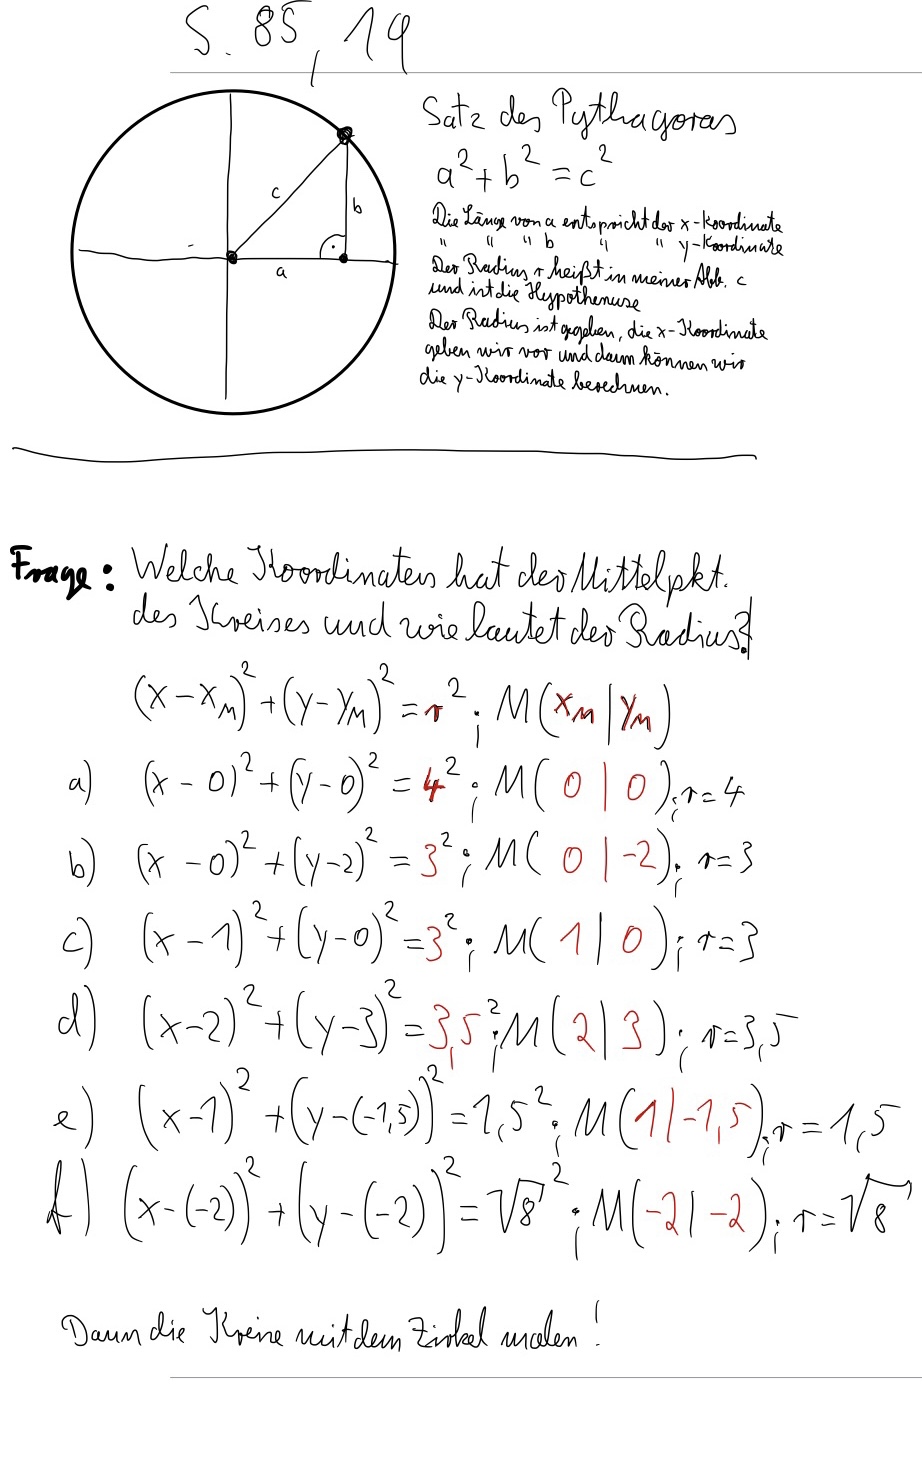 S. 85, 19
Satz des Pythagoras
a² + b² = c²
Die Länge von a entspricht der x-Koordinate
" " " b " " y-Koordinate
Der Radius r heißt in meiner Abb. c
und ist die Hypothenuse
Der Radius ist gegeben, die x-Koordinate
geben wir vor und dann können wir
die y-Koordinate berechnen.
c
b
a
Frage: Welche Koordinaten hat der Mittelpkt.
des Kreises und wie lautet der Radius?
(x - x_M)² + (y - y_M)² = r² ; M(x_M | y_M)
a) (x - 0)² + (y - 0)² = 4² ; M( 0 | 0 ); r = 4
b) (x - 0)² + (y - 2)² = 3² ; M( 0 | -2); r = 3
c) (x - 1)² + (y - 0)² = 3² ; M( 1 | 0 ); r = 3
d) (x - 2)² + (y - 3)² = 3,5² ; M( 2 | 3 ); r = 3,5
e) (x - 1)² + (y - (-1,5))² = 1,5² ; M(1 | -1,5); r = 1,5
f) (x - (-2))² + (y - (-2))² = √8² ; M(-2 | -2); r = √8
Dann die Kreise mit dem Zirkel malen!